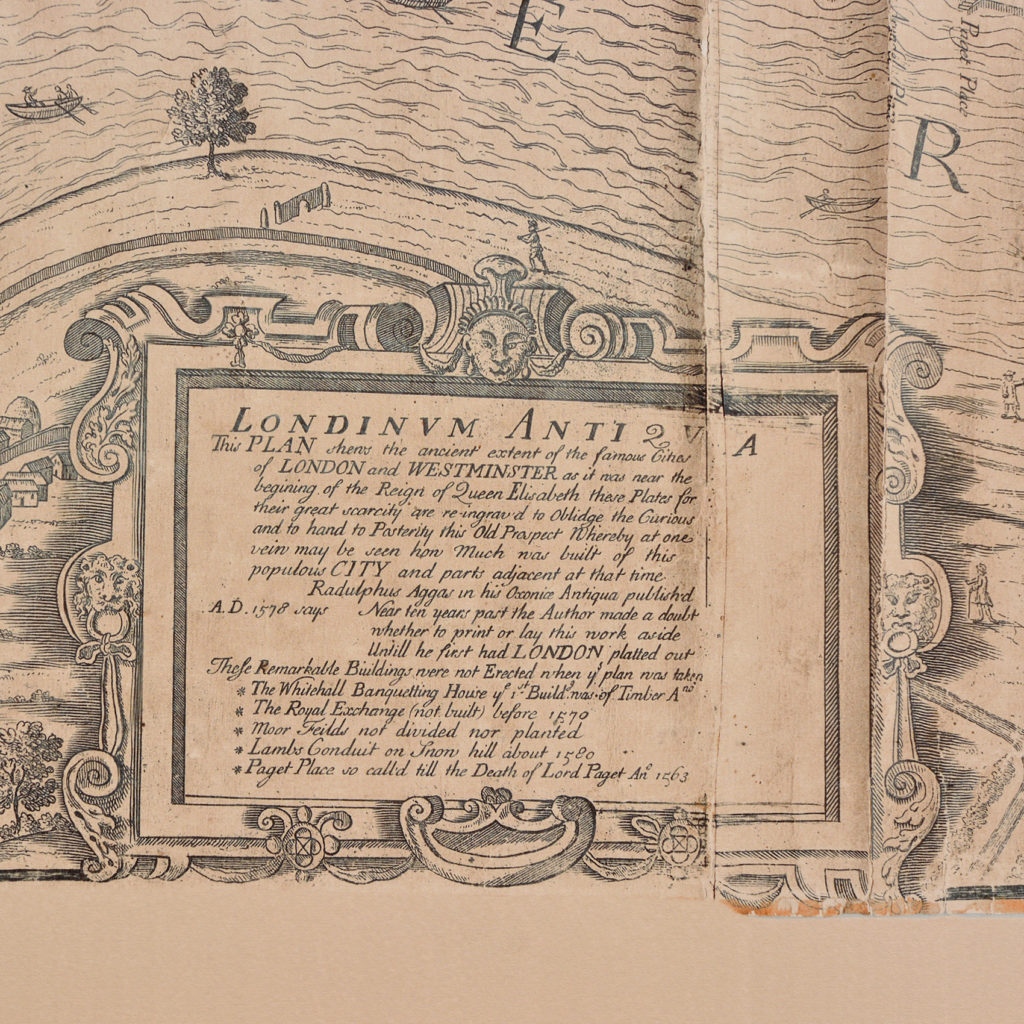 E
R
Paget Place
LONDINVM ANTIQV A
This PLAN shews the ancient extent of the famous Cities
of LONDON and WESTMINSTER as it was near the
begining of the Reign of Queen Elisabeth these Plates for
their great scarcity are re-ingrav'd to Oblidge the Curious
and to hand to Posterity this Old Prospect Whereby at one
veiw may be seen how Much was built of this
populous CITY and parts adjacent at that time
Radulphus Aggas in his Oxonice Antiqua publish'd
A.D. 1578 says Near ten years past the Author made a doubt
whether to print or lay this work aside
Untill he first had LONDON platted out
These Remarkable Buildings were not Erected when yᵉ plan was taken
* The Whitehall Banquetting House yᵉ 1ˢᵗ Buildᵍ was of Timber Aⁿᵒ
* The Royal Exchange (not built) before 1570
* Moor Feilds not divided nor planted
* Lambs Conduit on Snow hill about 1580
* Paget Place so call'd till the Death of Lord Paget Anᵒ 1563